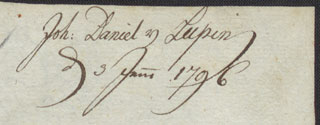 Joh: Daniel v Lupin
d 3 Jenn 1796